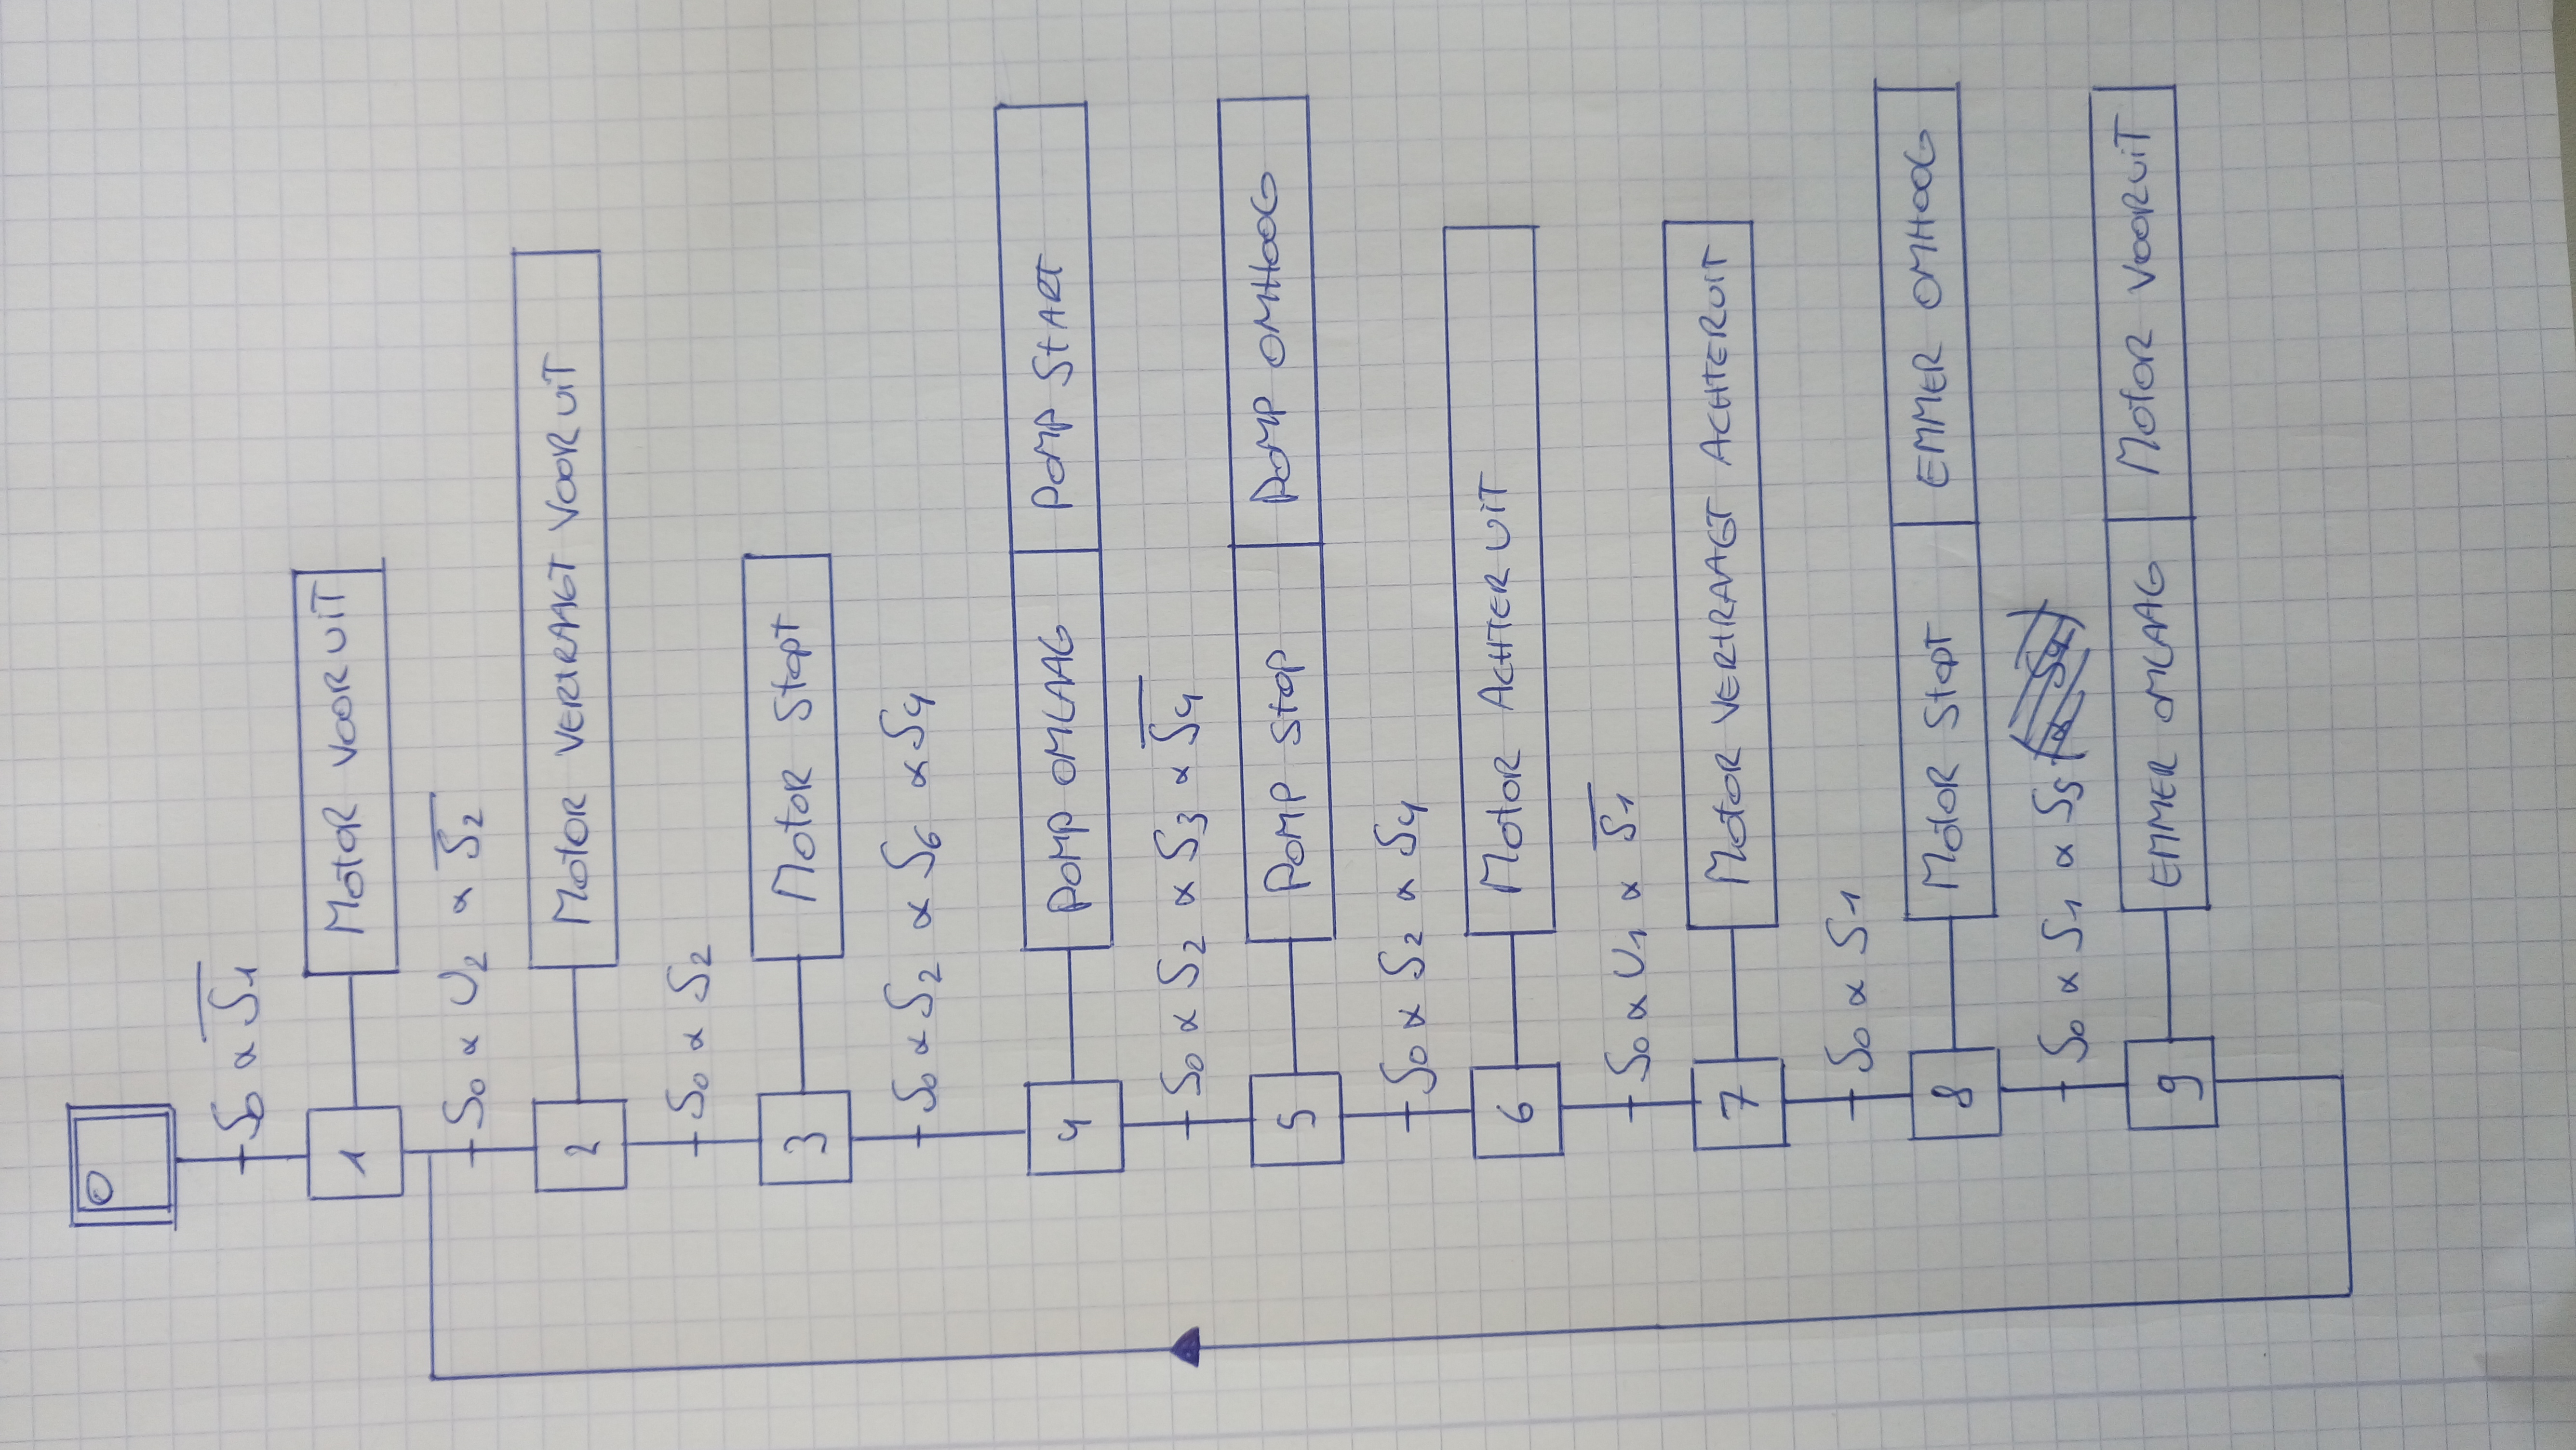 0
S0 ∝ S̅1̅
1 MOTOR VOORUIT
S0 ∝ U2 ∝ S̅2̅
2 MOTOR VERTRAAGT VOORUIT
S0 ∝ S2
3 MOTOR STOPT
S0 ∝ S2 ∝ S6 ∝ S4
4 POMP OMLAAG POMP START
S0 ∝ S2 ∝ S3 ∝ S̅4̅
5 POMP STOP POMP OMHOOG
S0 ∝ S2 ∝ S4
6 MOTOR ACHTERUIT
S0 ∝ U1 ∝ S̅1̅
7 MOTOR VERTRAAGT ACHTERUIT
S0 ∝ S1
8 MOTOR STOPT EMMER OMHOOG
S0 ∝ S1 ∝ S5
9 EMMER OMLAAG MOTOR VOORUIT